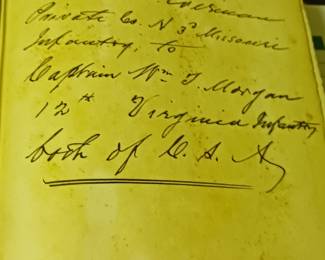 Private Co. N 3d Missouri
Infantry, to
Captain Wm T Morgan
12th Virginia Infantry
both of C. S. A